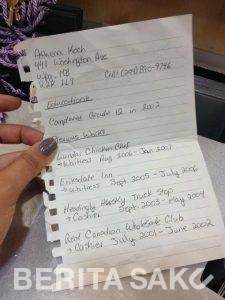 Athena Koch
441 Washington Ave
Wpg, MB
R2K 1L9
Cell (204) 890-9786
Education:
Completed Grade 12 in 2002
Previous Work:
Lundar Chicken Chef
→ Waitress Aug 2006 - Jan 2007
Eriksdale Inn
→ Waitress Sept. 2005 - July 2006
Headingly Husky Truck Stop
→ Cashier Sept. 2003 - May 2004
Real Canadian Wholesale Club
→ Cashier July 2001 - June 2002
BERITA SAKO